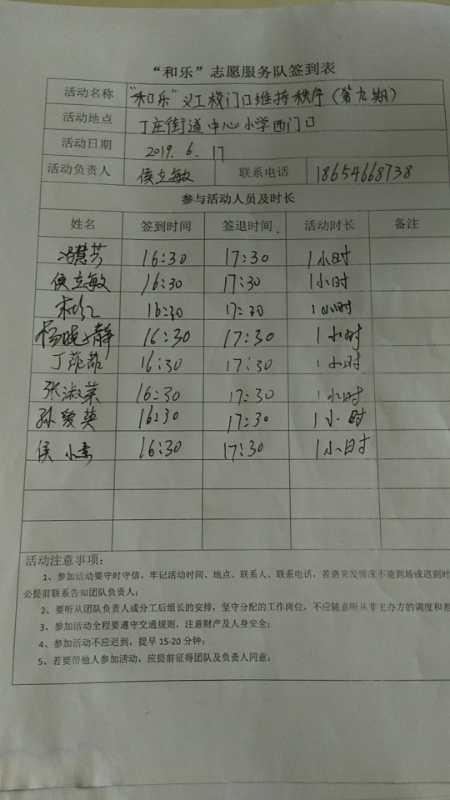 “和乐”志愿服务队签到表
活动名称 “和乐”义工校门口维持秩序（第九期）
活动地点 丁庄街道中心小学西门口
活动日期 2019. 6. 17
活动负责人 侯立敏 联系电话 18654668738
参与活动人员及时长
姓名 签到时间 签退时间 活动时长 备注
冯慧芳 16:30 17:30 1小时
侯立敏 16:30 17:30 1小时
16:30 17:30 1小时
杨晓静 16:30 17:30 1小时
丁萍萍 16:30 17:30 1小时
张淑荣 16:30 17:30 1小时
孙爱英 16:30 17:30 1小时
侯小 16:30 17:30 1小时
活动注意事项：
1、参加活动要守时守信，牢记活动时间、地点、联系人、联系电话，若遇突发情况不能到场或迟到时
必提前联系告知团队负责人；
2、要听从团队负责人或分工后组长的安排，坚守分配的工作岗位，不应随意听从非主办方的调度和差
3、参加活动全程要遵守交通规则，注意财产及人身安全；
4、参加活动不应迟到，提早 15-20 分钟；
5、若要带他人参加活动，应提前征得团队及负责人同意；